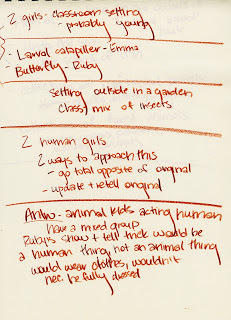 2 girls - classroom setting
- probably young
- Larval catapiller - Emma
- Butterfly - Ruby
setting outside in a garden
class / mix of insects
2 human girls
2 ways to approach this
- go total opposite of original
- update & retell original
Anthro - animal kids acting human
have a mixed group
Ruby's show & tell trick would be
a human thing, not an animal thing
would wear clothes, wouldn't
nec. be fully dressed